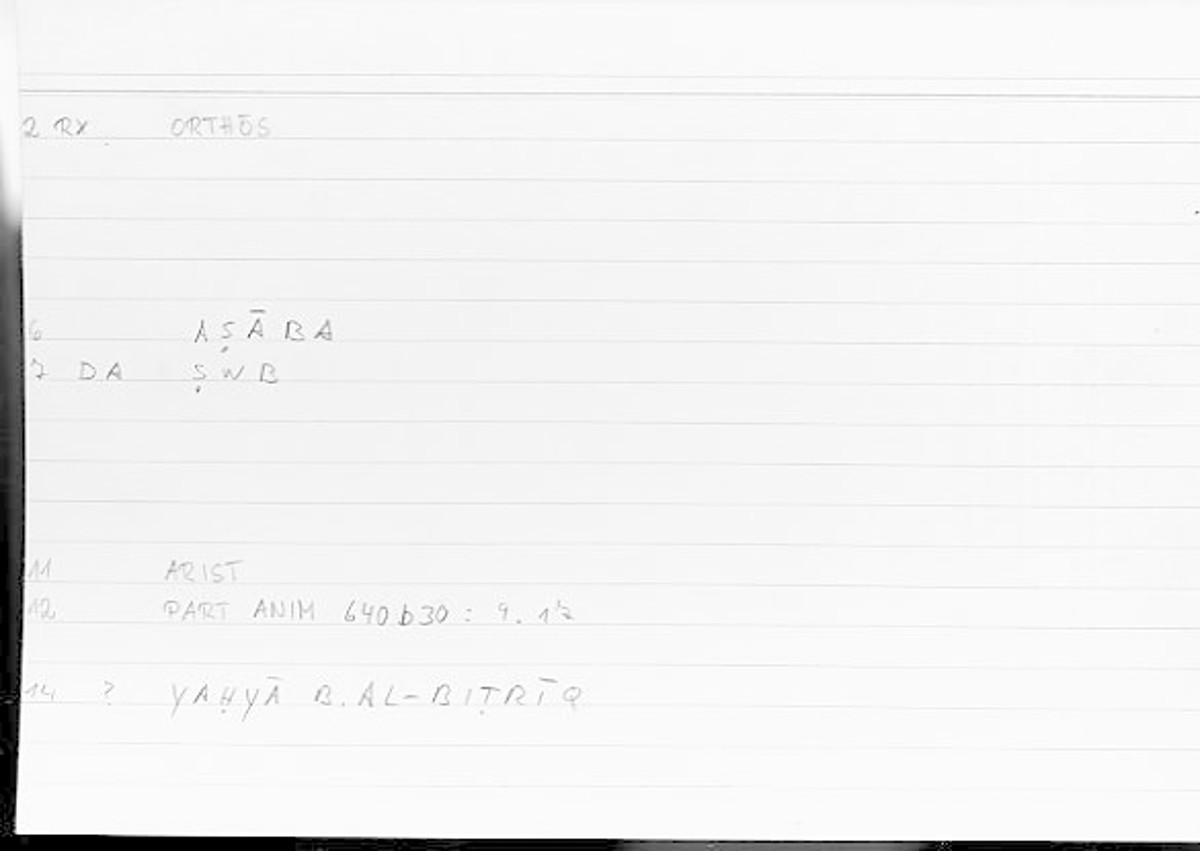 2 RX ORTHŌS
6 AṢĀBA
7 DA ṢWB
11 ARIST
12 PART ANIM 640b30 : 9.17
14 ? YAḤYĀ B. AL-BIṬRĪQ